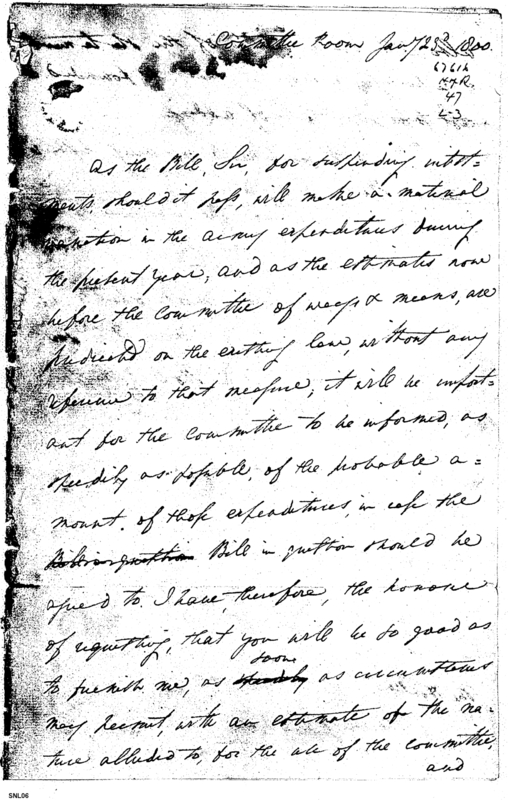 Committee Room Jany 23d 1800.
67616
HR
47
L-3
As the Bill, Sir, for suspending inlist=
ments, should it pass, will make a material
variation in the army expenditures during
the present year, and as the estimates now
before the Committee of ways & means, are
predicated on the existing law, without any
reference to that measure; it will be import=
ant for the Committee to be informed, as
speedily as possible, of the probable a=
mount, of those expenditures, in case the
Bill in question Bill in question should be
agreed to. I have, therefore, the honour
of requesting, that you will be so good as
soon
to furnish me, as speedily as circumstances
may permit, with an estimate of the na=
ture alluded to, for the use of the Committee,
and
SNL06